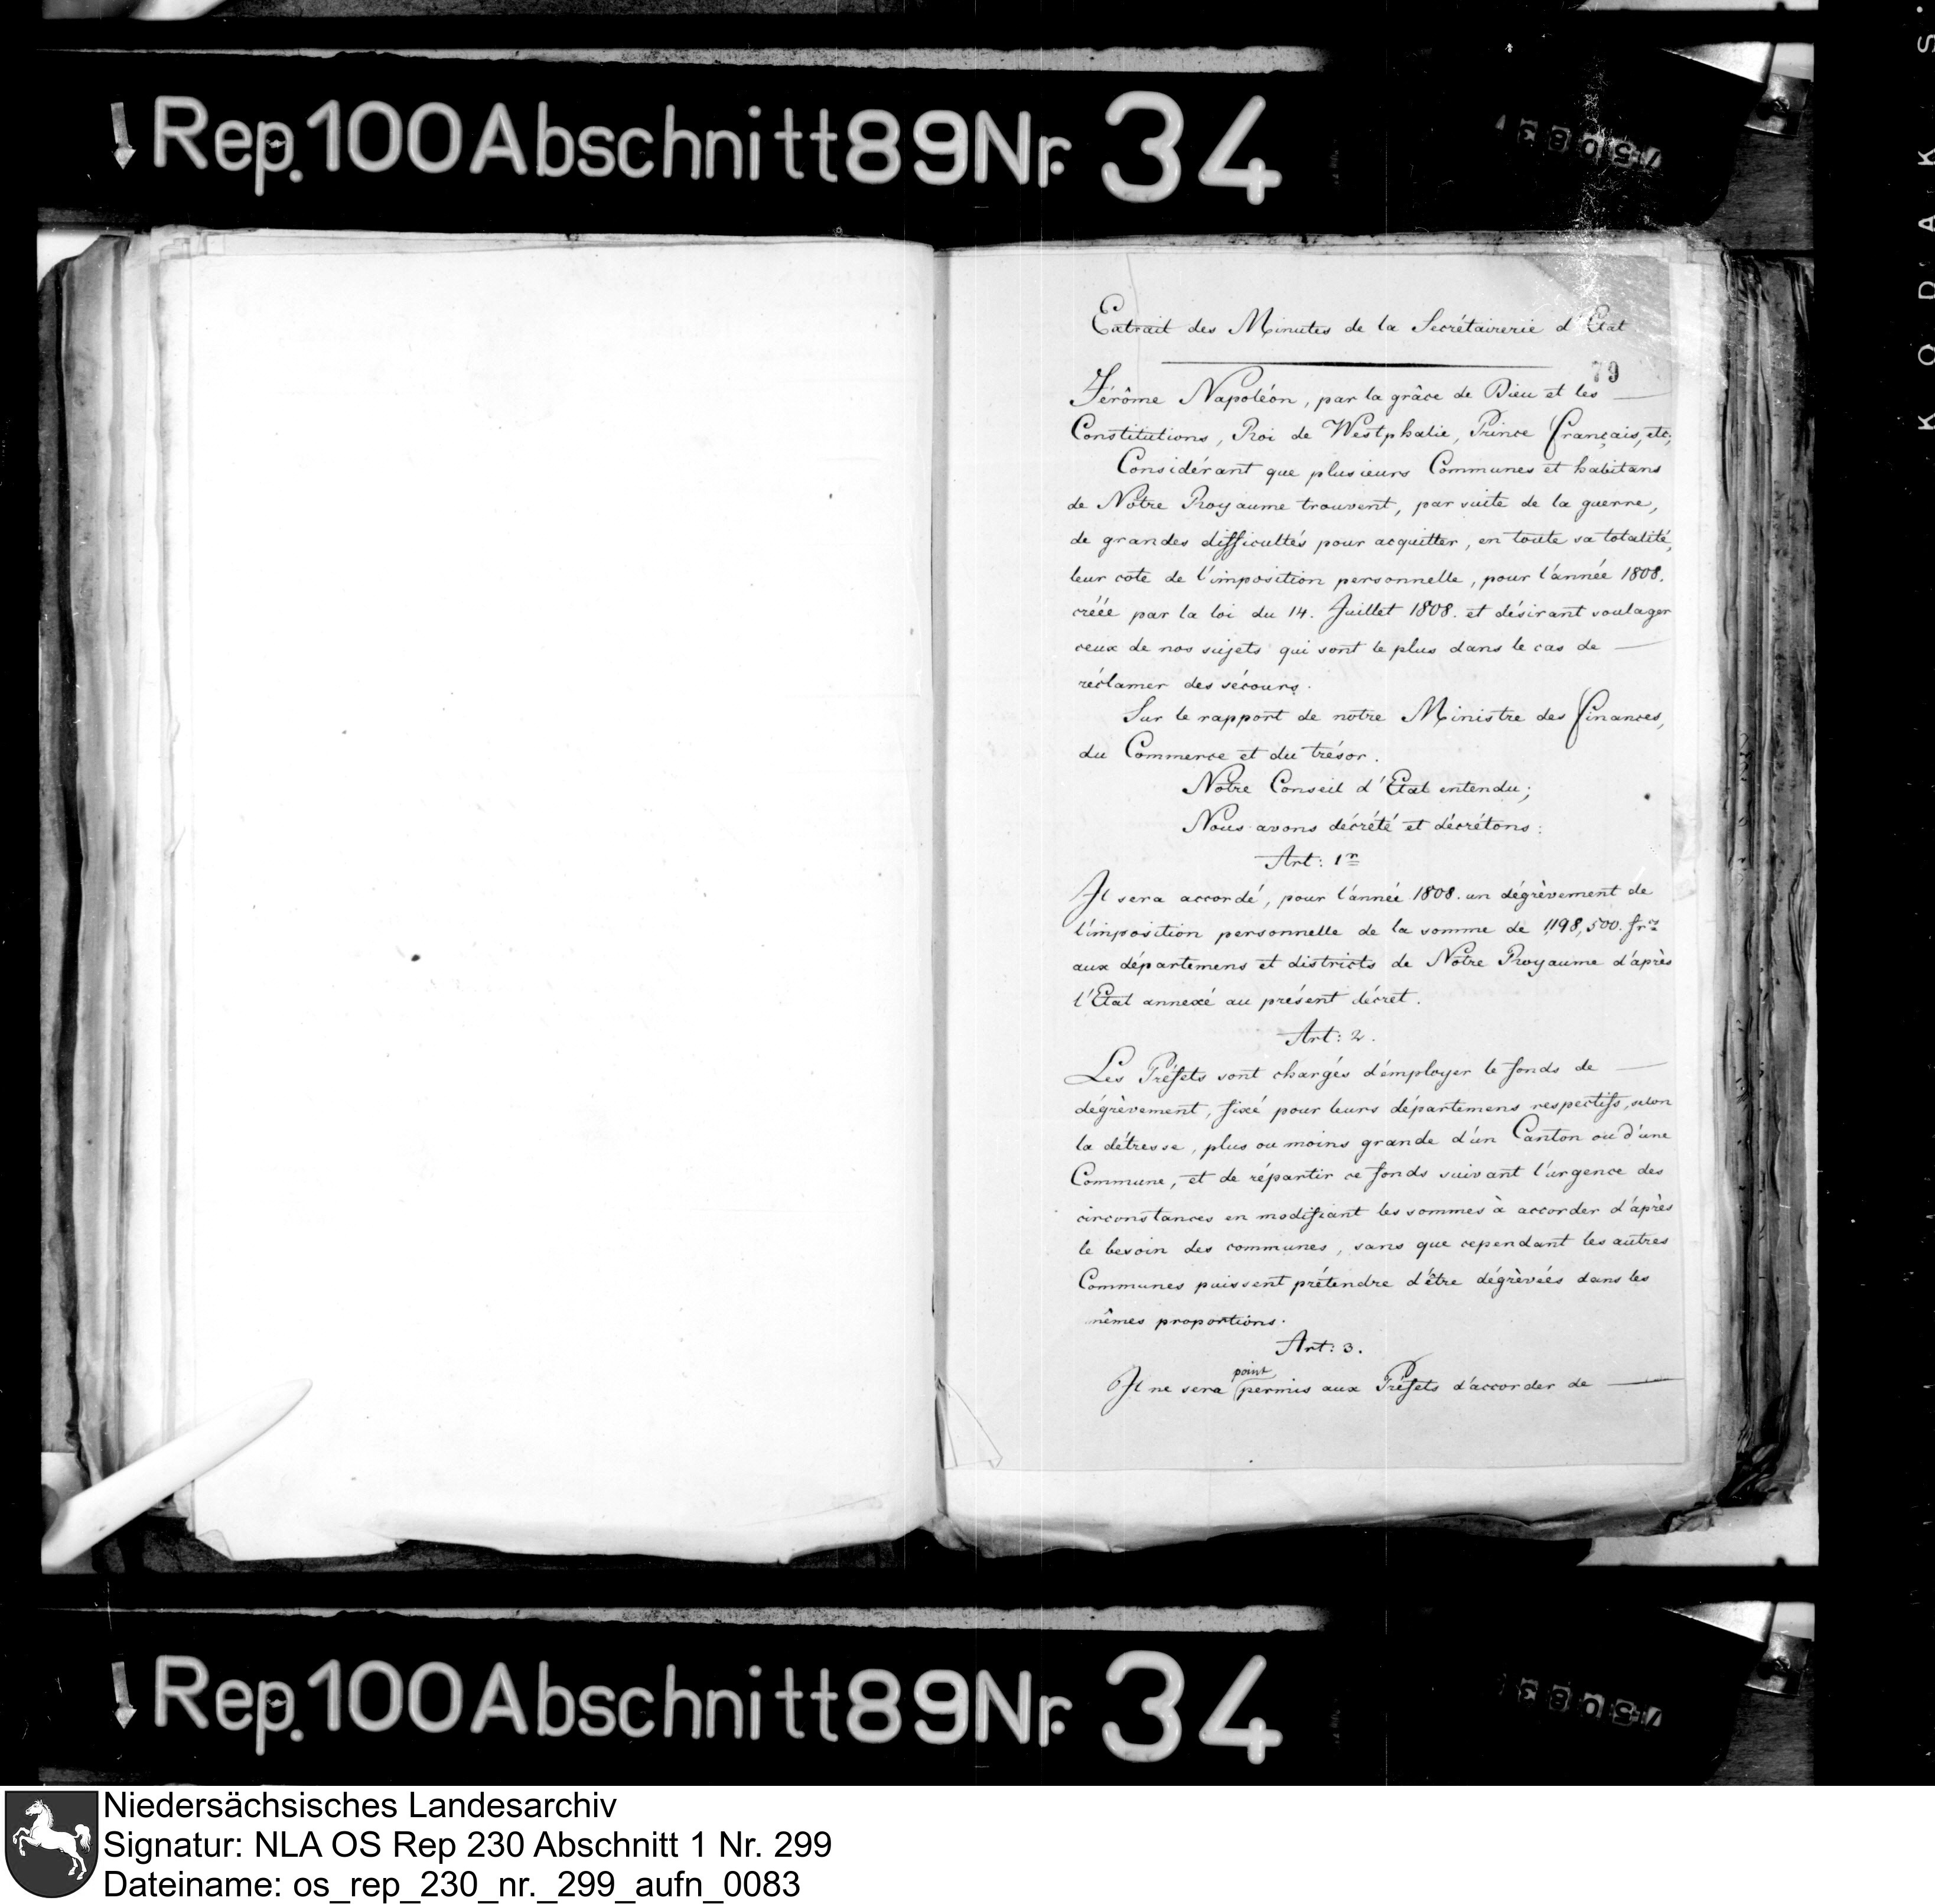 Rep. 100 Abschnitt 89 Nr. 34
Extrait des Minutes de la Secrétairerie d'Etat
79
Jérôme Napoléon, par la grâce de Dieu et les
Constitutions, Roi de Westphalie, Prince français, etc,
Considérant que plusieurs Communes et habitans
de Notre Royaume trouvent, par suite de la guerre,
de grandes difficultés pour acquitter, en toute sa totalité,
leur cote de l'imposition personnelle, pour l'année 1808.
créée par la loi du 14. Juillet 1808. et désirant soulager
ceux de nos sujets qui sont le plus dans le cas de
réclamer des sécours.
Sur le rapport de notre Ministre des finances,
du Commerce et du trésor.
Notre Conseil d'Etat entendu;
Nous avons décrété et décrétons:
Art: 1r
Il sera accordé, pour l'année 1808. un dégrèvement de
l'imposition personnelle de la somme de 1198,500. frcs
aux départemens et districts de Notre Royaume d'après
l'Etat annexé au présent décret.
Art: 2.
Les Préfets sont chargés d'employer le fonds de
dégrèvement, fixé pour leurs départemens respectifs, selon
la détresse, plus ou moins grande d'un Canton ou d'une
Commune, et de répartir ce fonds suivant l'urgence des
circonstances en modifiant les sommes à accorder d'après
le besoin des communes, sans que cependant les autres
Communes puissent prétendre d'être dégrèvées dans les
mêmes proportions.
Art: 3.
point
Il ne sera permis aux Préfets d'accorder de
Rep. 100 Abschnitt 89 Nr. 34
KODAK S
Niedersächsisches Landesarchiv
Signatur: NLA OS Rep 230 Abschnitt 1 Nr. 299
Dateiname: os_rep_230_nr._299_aufn_0083